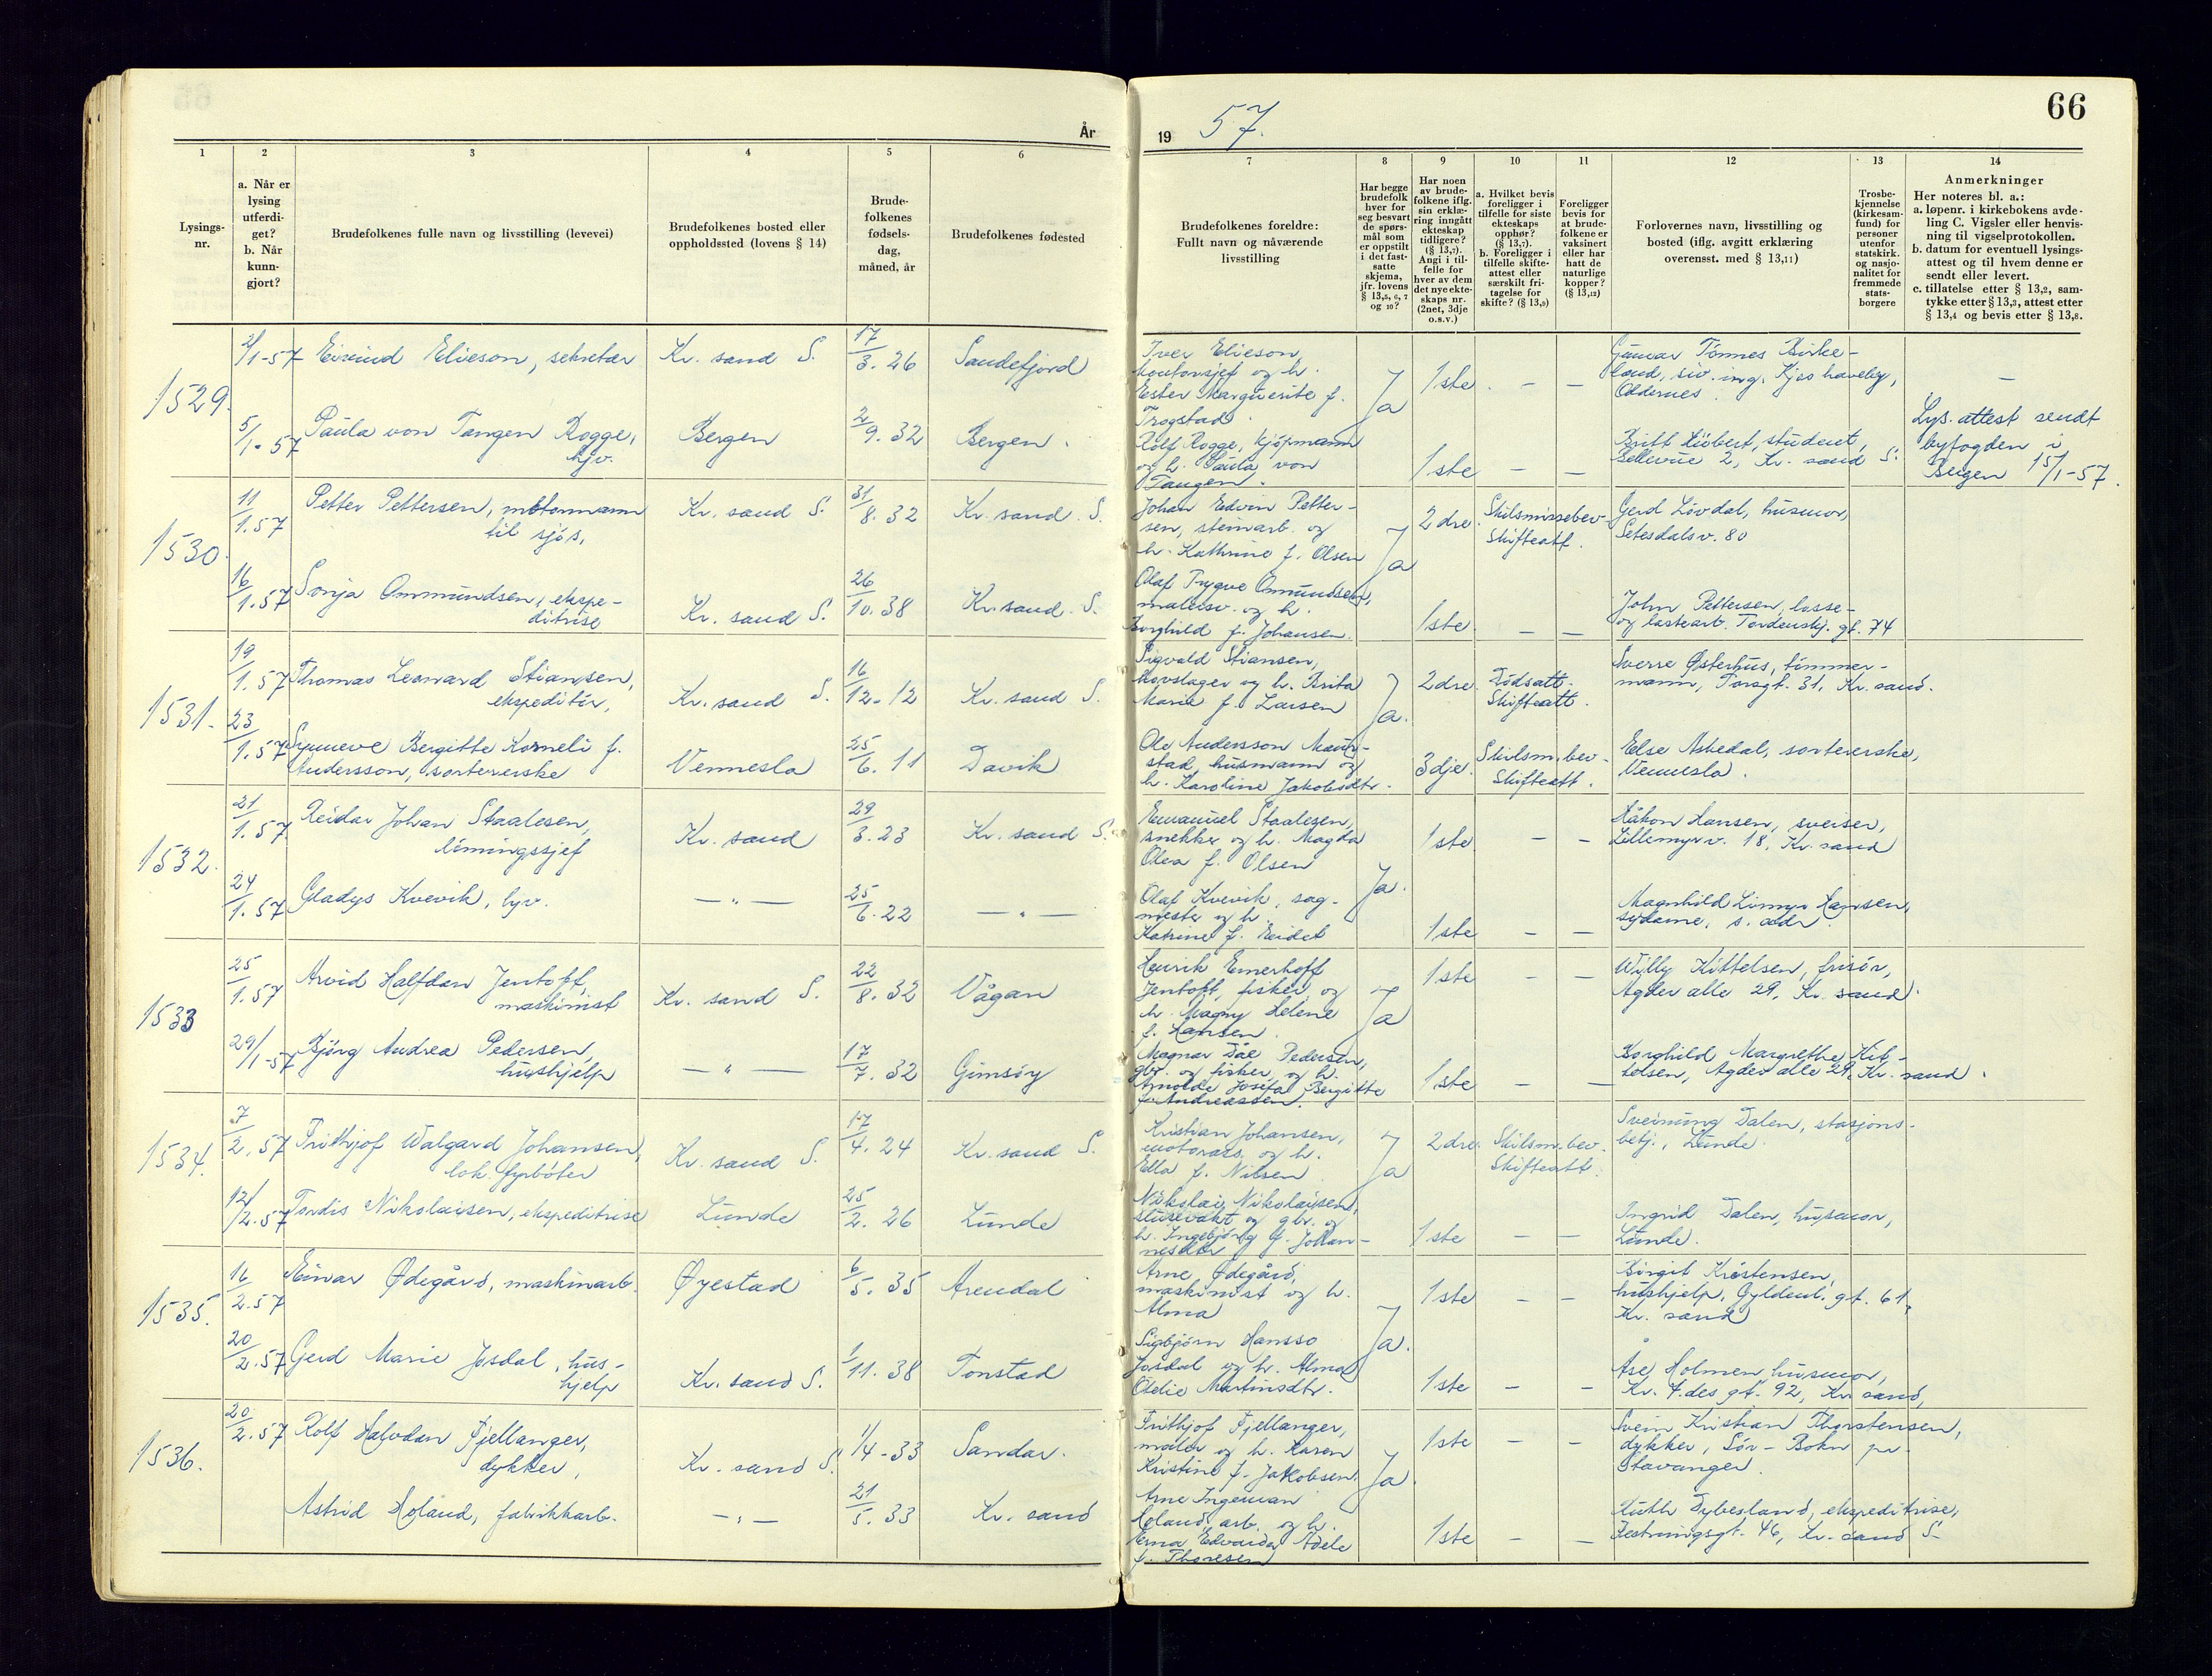 66
År
19 57.
1
2
3
4
5
6
7
8
9
10
11
12
13
14
Lysings-
nr.
a. Når er
lysing
utferdi-
get?
b. Når
kunn-
gjort?
Brudefolkenes fulle navn og livsstilling (levevei)
Brudefolkenes bosted eller
oppholdssted (lovens § 14)
Brude-
folkenes
fødsels-
dag,
måned, år
Brudefolkenes fødested
Brudefolkenes foreldre:
Fullt navn og nåværende
livsstilling
Har begge
brudefolk
hver for
seg besvart
de spørs-
mål som
er oppstilt
i det fast-
satte
skjema,
jfr. lovens
§ 13,5, 6, 7
og 10?
Har noen
av brude-
folkene iflg.
sin erklæ-
ring inngått
ekteskap
tidligere?
(§ 13,7).
Angi i til-
felle for
hver av dem
det nye ekte-
skaps nr.
(2net, 3dje
o.s.v.)
a. Hvilket bevis
foreligger i
tilfelle for siste
ekteskaps
opphør?
(§ 13,7).
b. Foreligger i
tilfelle skifte-
attest eller
særskilt fri-
tagelse for
skifte? (§ 13,9)
Foreligger
bevis for
at brude-
folkene er
vaksinert
eller har
hatt de
naturlige
kopper?
(§ 13,12)
Forlovernes navn, livsstilling og
bosted (iflg. avgitt erklæring
overensst. med § 13,11)
Trosbe-
kjennelse
(kirkesam-
fund) for
personer
utenfor
statskirk.
og nasjo-
nalitet for
fremmede
stats-
borgere
Anmerkninger
Her noteres bl. a.:
a. løpenr. i kirkebokens avde-
ling C. Vigsler eller henvis-
ning til vigselprotokollen.
b. datum for eventuell lysings-
attest og til hvem denne er
sendt eller levert.
c. tillatelse etter § 13,2, sam-
tykke etter § 13,3, attest etter
§ 13,4 og bevis etter § 13,8.
1529.
2/1-57 Eivind Elieson, sekretær
Kr. sand S.
17/3. 26
Sandefjord
Iver Elieson,
kontorsjef og h.
Ester Marguerite f.
Trogstad.
Ja
1ste. - -
Gunnar Tønnes Birke-
land, siv. ing. Kjos haveby,
Oddernes.
-
5/1-57 Paula von Tangen Rogge,
hjv.
Bergen
2/9. 32
Bergen.
Rolf Rogge, kjøpmann
og h. Paula von
Tangen.
1ste - -
Britt Hübert, student,
Bellevue 2, Kr. sand S.
Lys. attest sendt
byfogden i
Bergen 15/1-57.
1530.
11/1.57 Petter Pettersen, motormann
til sjøs,
Kr. sand S.
31/8. 32
Kr. sand. S.
Johan Edvin Petter-
sen, steinarb. og
h. Kathrine f. Olsen
Ja
2dre.
Skilsmissebev.
Skifteatt.
Gerd Lövdal, husmor,
Setesdalsv. 80
16/1.57 Sonja Ommundsen, ekspe-
ditrise
Kr. sand S.
26/10. 38
Kr. sand. S.
Olaf Trygve Ommundsen,
malersv. og h.
Borghild f. Johansen.
1ste. - -
John Pettersen, losse-
og lastearb. Tordenskj. gt. 74
1531.
19/1.57 Thomas Leonard Stiansen,
ekspeditör,
Kr. sand S.
16/12. 12
Kr. sand S.
Sigvald Stiansen,
hovslager og h. Brita
Marie f. Larsen
Ja.
2dre
Dødsatt.
Skifteatt.
Sverre Østerhus, tömmer-
mann, Torsgt. 31, Kr. sand.
23/1.57 Synneve Bergitte Korneli f.
Andersson, sortererske
Vennesla
25/6. 11
Davik
Ole Andersson Maur-
stad, husmann og
h. Karoline Jakobsdtr.
3dje.
Skilsm. bev.
Skifteatt.
Else Askedal, sortererske,
Vennesla.
1532.
21/1.57 Reidar Johan Staalesen,
Kr. sand
29/3. 23
Kr. sand S.
Emanuel Staalesen,
snekker og h. Magda
Olea f. Olsen
Ja.
1ste - -
Håkon Hansen, sveiser,
Lillemyrv. 18, Kr. sand
24/1.57 Gladys Kvevik, hjv.
-"-
25/6. 22
-"-
Olaf Kvevik, sag-
mester og h.
Katrine f. Eidet
1ste - -
Magnhild Hansen,
sydame, s. adr.
1533
25/1.57 Arvid Halfdan Jentoft,
maskinist
Kr. sand S.
22/8. 32
Vågan
Henrik Emerhoff
Jentoft, fisker, og
h. Magny Helene
f. Hansen.
Ja
1ste - -
Willy Kittelsen, frisör,
Agder alle 29, Kr. sand.
29/1-57 Bjørg Andrea Pedersen,
hushjelp
-"-
17/7. 32
Gimsöy
Magnar Dåe Pedersen,
gbr. og fisker, og h.
Arnolde Josefa Bergitte
f. Andreassen.
1ste - -
Borghild Margrethe Kit-
telsen, Agder alle 29, Kr. sand.
1534.
7/2.57 Frithjof Walgard Johansen,
lok. fyrböter
Kr. sand S.
17/4. 24
Kr. sand S.
Kristian Johansen,
motorars. og h.
Ella f. Nilsen
Ja
2dre.
Skilsm. bev.
Skifteatt.
Sveinung Dalen, stasjons-
betj., Lunde.
12/2.57 Tordis Nikolaisen, ekspeditrise
Lunde
25/2. 26
Lunde
Nikolai Nikolaisen,
slusevakt og gbr. og
h. Ingebjörg f. Johan-
nesdtr
1ste - -
Ingrid Dalen, husmor,
Lunde.
1535.
16/2.57 Einar Ødegård, maskinarb.
Øyestad
6/5. 35
Arendal
Arne Ødegård,
maskinist og h.
Alma
Ja.
1ste - -
Birgit Kristensen,
hushjelp, Gyldenl. gt. 61,
Kr. sand
20/2.57 Gerd Marie Josdal, hus-
hjelp
Kr. sand S.
1/11. 38
Tonstad
Sigbjørn Hansso
Josdal og h. Alma
Odelie Martinsdtr.
1ste - -
Åse Holmen, husmor,
Kr. 4.des gt. 92, Kr. sand,
1536.
20/2.57 Rolf Halvdan Fjellanger,
dykker,
Kr. sand S.
1/4-33
Sandar.
Frithjof Fjellanger,
maler og h. Karen
Kristine f. Jakobsen.
Ja.
1ste - -
Svein Kristian Thorstensen,
dykker, Sör-Bokn pr.
Stavanger.
Astrid Høland, fabrikkarb.
-"-
21/5. 33
Kr. sand
Arne Ingeman
Høland, arb. og h.
Erna Edvarda Adele
f. Thoresen
1ste - -
Ruth Dybesland, ekspeditrise,
Festningsgt. 46, Kr. sand S-